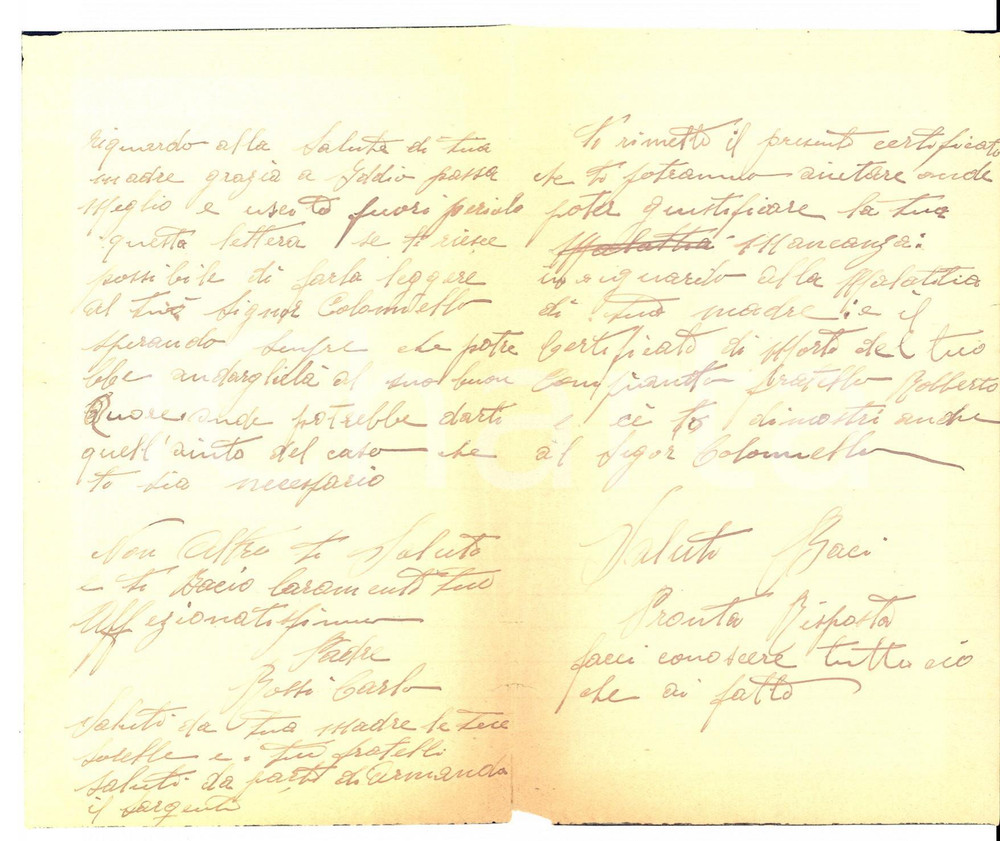 riguardo alla Salute di tua
madre grazia a Iddio passa
Meglio e uscito fuori periolo
questa lettera se ti riesce
possibile di farla leggere
al tuo signor Colonnello
sperando sempre che potre
bbe andarglielà al suo buon
Quore onde potrebbe darti
quell'aiuto del caso che
to sia necessario
Non Altro ti Saluto
e ti Bacio Caramente tuo
Affezionatissimo
Padre
Rossi Carlo
Saluti da tua Madre le tue
sorelle e i tui fratelli
saluti da parte di armando
il sargente
Ti rimetto il presente certificato
che ti potranno aiutare onde
poter giustificare la tua
Malattia Mancanza:
in riguardo alla Malattia
di tua madre: e il
Certificato di Morte del tuo
Compianto fratello Rolberto
e ce to dimostri anche
al Sigor Colonnello
Saluti Baci
Pronta Risposta
facci conoscere tutto ciò
che ai fatto